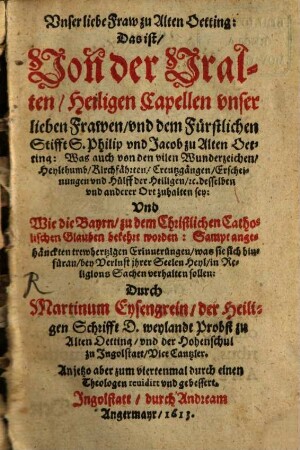 Vnser liebe Fraw zu Alten Oetting:
Das ist/
Von der Vral-
ten / Heiligen Capellen vnser
lieben Frawen/vnd dem Fürstlichen
Stifft S. Philip vnd Jacob zu Alten Oet-
ting: Was auch von den vilen Wunderzeichen/
Heylthumb/Kirchfährten/ Creutzgängen/Erschei-
nungen vnd Hülff der Heiligen/ ꝛc. desselben
vnd anderer Ort zuhalten sey:
Vnd
Wie die Bayrn/zu dem Christlichen Catho-
lischen Glauben bekehrt worden: Sampt ange-
hänckten trewhertzigen Erinnerungen/was sie sich hin-
füran/bey Verlust jhrer Seelen Heyl/in Re-
ligions Sachen verhalten sollen:
Durch
Martinum Eysengrein/der Heili-
gen Schrifft D. weylandt Probst zu
Alten Oetting/ vnd der Hohenschul
zu Ingolstatt/Vice Cantzler.
Anjetzo aber zum viertenmal durch einen
Theologen reuidirt vnd gebessert.
Ingolstatt / durch Andream
Angermayr/ 1613.